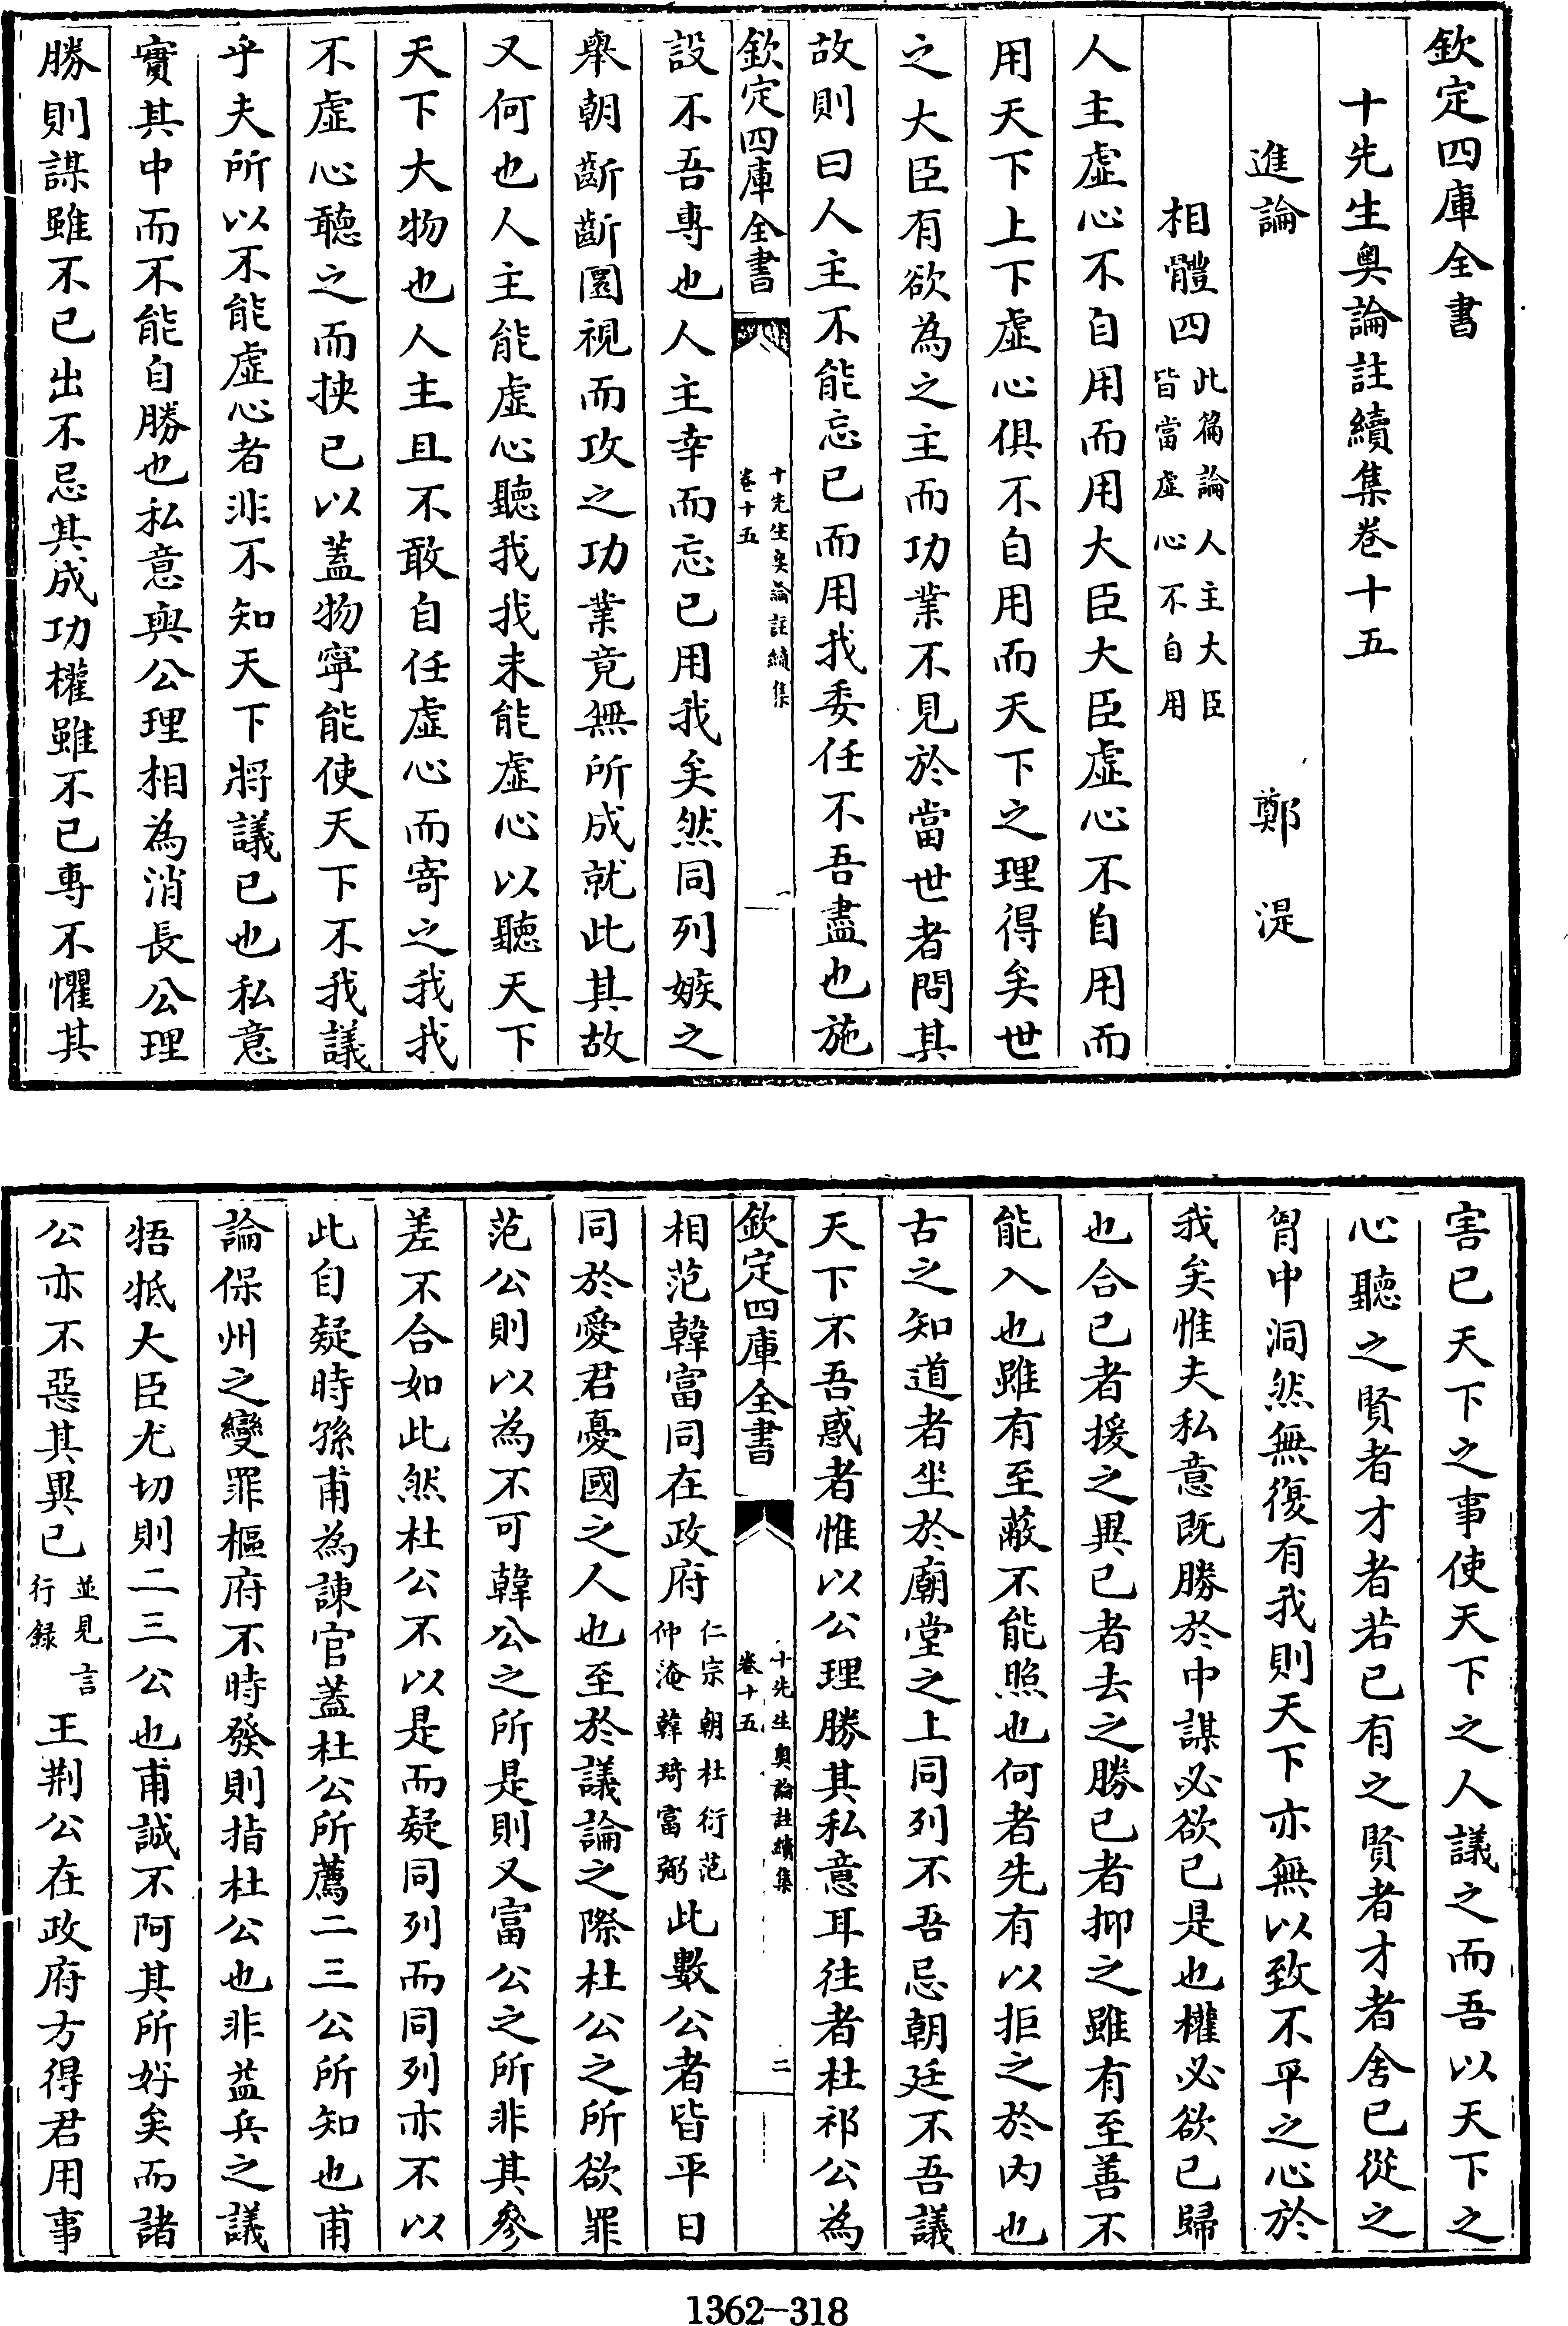 欽定四庫全書
十先生奥論註續集卷十五
進論
鄭湜
相體四
此篇論人主大臣
皆當虚心不自用
人主虚心不自用而用大臣大臣虚心不自用而
用天下上下虚心俱不自用而天下之理得矣世
之大臣有欲為之主而功業不見於當世者問其
故則曰人主不能忘已而用我委任不吾盡也施
欽定四庫全書
十先生奥論註續集
卷十五
一
設不吾專也人主幸而忘已用我矣然同列嫉之
舉朝齗齗圜視而攻之功業竟無所成就此其故
又何也人主能虚心聽我我未能虚心以聽天下
天下大物也人主且不敢自任虚心而寄之我我
不虚心聽之而挟已以蓋物寧能使天下不我議
乎夫所以不能虚心者非不知天下將議已也私意
實其中而不能自勝也私意與公理相為消長公理
勝則謀雖不已出不忌其成功權雖不已專不懼其
害已天下之事使天下之人議之而吾以天下之
心聽之賢者才者若已有之賢者才者舍已從之
胷中洞然無復有我則天下亦無以致不平之心於
我矣惟夫私意既勝於中謀必欲已是也權必欲已歸
也合已者援之異已者去之勝已者抑之雖有至善不
能入也雖有至蔽不能照也何者先有以拒之於内也
古之知道者坐於廟堂之上同列不吾忌朝廷不吾議
天下不吾惑者惟以公理勝其私意耳往者杜祁公為
欽定四庫全書
十先生奥論註續集
卷十五
二
相范韓富同在政府
仁宗朝杜衍范
仲淹韓琦富弼
此數公者皆平日
同於愛君憂國之人也至於議論之際杜公之所欲罪
范公則以為不可韓公之所是則又富公之所非其參
差不合如此然杜公不以是而疑同列而同列亦不以
此自疑時孫甫為諫官蓋杜公所薦二三公所知也甫
論保州之變罪樞府不時發則指杜公也非益兵之議
牾牴大臣尤切則二三公也甫誠不阿其所好矣而諸
公亦不惡其異已
並見言
行録
王荆公在政府方得君用事
1362-318